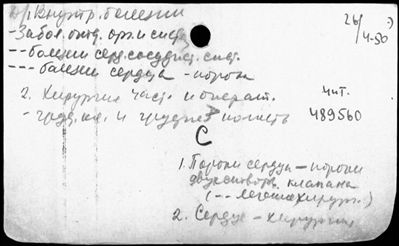 1. Внутр. болезни
26/4-50
- Забол. отд. орг. и сист.
-- болезни серд. сосудист. сист.
--- болезни сердца - пороки
2. Хирургия част. и операт. чит.
- груд. кл. и грудная полость 489560
С
1. Пороки сердца - пороки
двухстворч. клапана
(-- лечение хирург.)
2. Сердце - хирургия